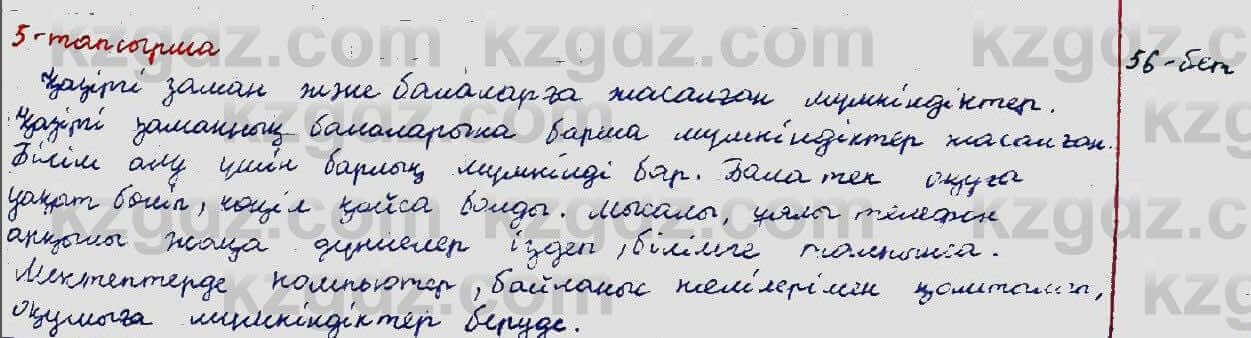 5-тапсырма
56-бет
Қазіргі заман және балаларға жасалған мүмкіндіктер.
Қазіргі заманның балаларына барша мүмкіндіктер жасалған.
Білім алу үшін барлық мүмкінді бар. Бала тек оқуға
уақыт бөліп, көңіл қойса болды. Мысалы, ұялы телефон
арқылы жаңа дүниелер іздеп, білімге талпынса.
Мектептерде компьютер, байланыс желілерімен қамтылып,
оқушыға мүмкіндіктер беруде.